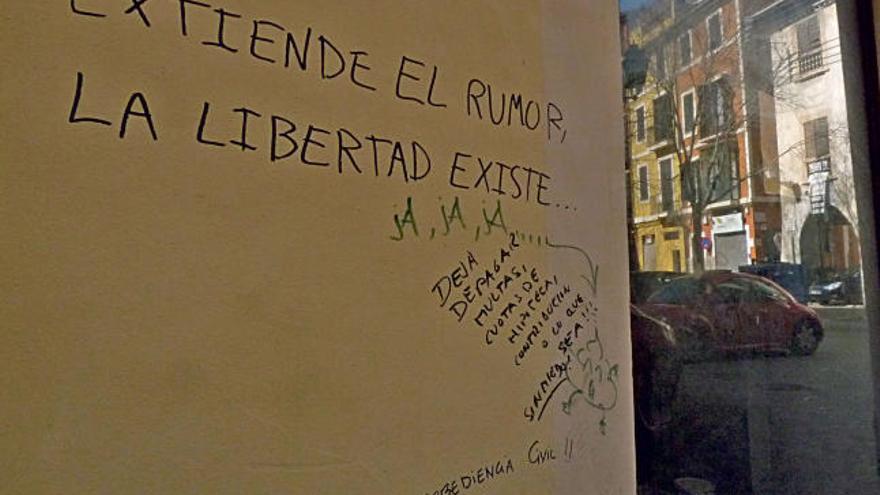 EXTIENDE EL RUMOR,
LA LIBERTAD EXISTE...
jA, jA, jA.....
DEJA
DE PAGAR
MULTAS,
CUOTAS DE
HIPOTECA,
CONTRIBUCION
O LO QUE
SEA!!!
SIN MIEDO!
OBEDIENCIA CIVIL !!